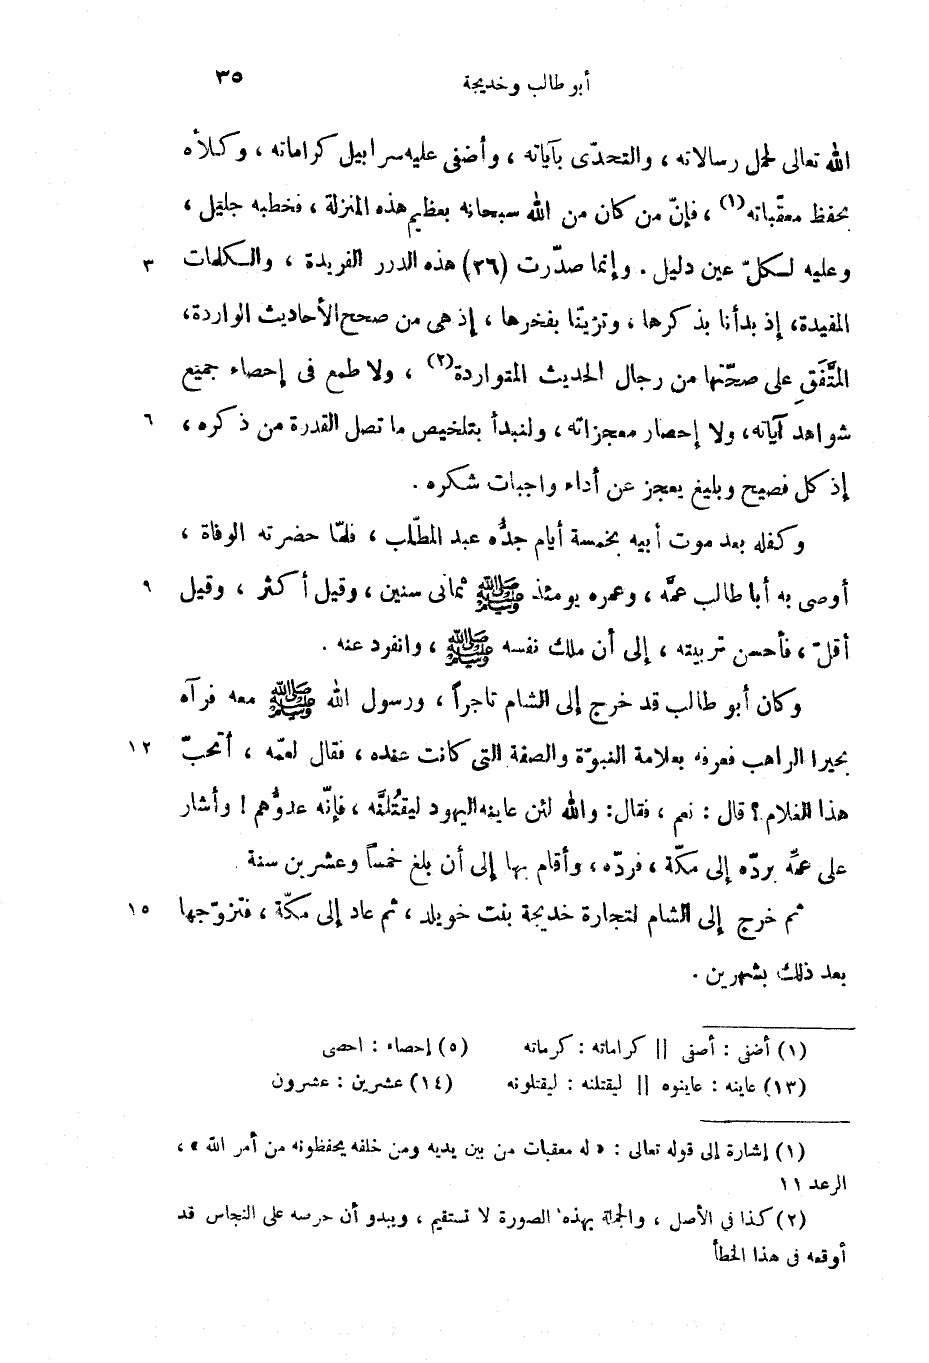 أبو طالب وخديجة ٣٥
الله تعالى لحمل رسالاته ، والتحدّى بآياته ، وأضفى عليه سرابيل كراماته ، وكلأه
بحفظ معقّباته(١) ، فإنّ من كان من الله سبحانه بعظيم هذه المنزلة ، فخطبه جليل ،
وعليه لكلّ عين دليل . وإنما صدّرت (٢٦) هذه الدرر الفريدة ، والكلمات ٣
المفيدة، إذ بدأنا بذكرها ، وتزيّنّا بفخرها ، إذ هى من صحح الأحاديث الواردة،
المتَّفَقِ على صحّتها من رجال الحديث المتواردة(٢) ، ولا طمع فى إحصاء جميع
شواهد آياته، ولا إحصار معجزاته ، ولنبدأ بتلخيص ما تصل القدرة من ذكره ، ٦
إذ كل فصيح وبليغ يعجز عن أداء واجبات شكره .
وكفله بعد موت أبيه بخمسة أيام جدُّه عبد المطّلب ، فلمّا حضرته الوفاة ،
أوصى به أبا طالب عمَّه ، وعمره يومئذ ﷺ ثمانى سنين ، وقيل أكثر ، وقيل ٩
أقلّ ، فأحسن تربيته ، إلى أن ملك نفسه ﷺ ، وانفرد عنه .
وكان أبو طالب قد خرج إلى الشام تاجراً ، ورسول الله ﷺ معه فرآه
بحيرا الراهب فعرفه بعلامة النبوّة والصفة التى كانت عنده ، فقال لعمّه ، أتحبّ ١٢
هذا الغلام ؟ قال : نعم ، فقال: والله لئن عاينه اليهود ليقتُلنَّه ، فإنّه عدوُّهم ! وأشار
على عمِّه بردّه إلى مكّة ، فردّه ، وأقام بها إلى أن بلغ خمساً وعشرين سنة .
ثم خرج إلى الشام لتجارة خديجة بنت خويلد ، ثم عاد إلى مكّة ، فتزوّجها ١٥
بعد ذلك بشهرين .
(١) أضفى : أصفى || كراماته : كرماته (٥) إحصاء : احصى
(١٣) عاينه : عاينوه || ليقتلنه : ليقتلونه (١٤) عشرين : عشرون
(١) إشارة إلى قوله تعالى : « له معقبات من بين يديه ومن خلفه يحفظونه من أمر الله » ،
الرعد ١١
(٢) كذا فى الأصل ، والجملة بهذه الصورة لا تستقيم ، ويبدو أن حرصه على النجاس قد
أوقعه فى هذا الخطأ